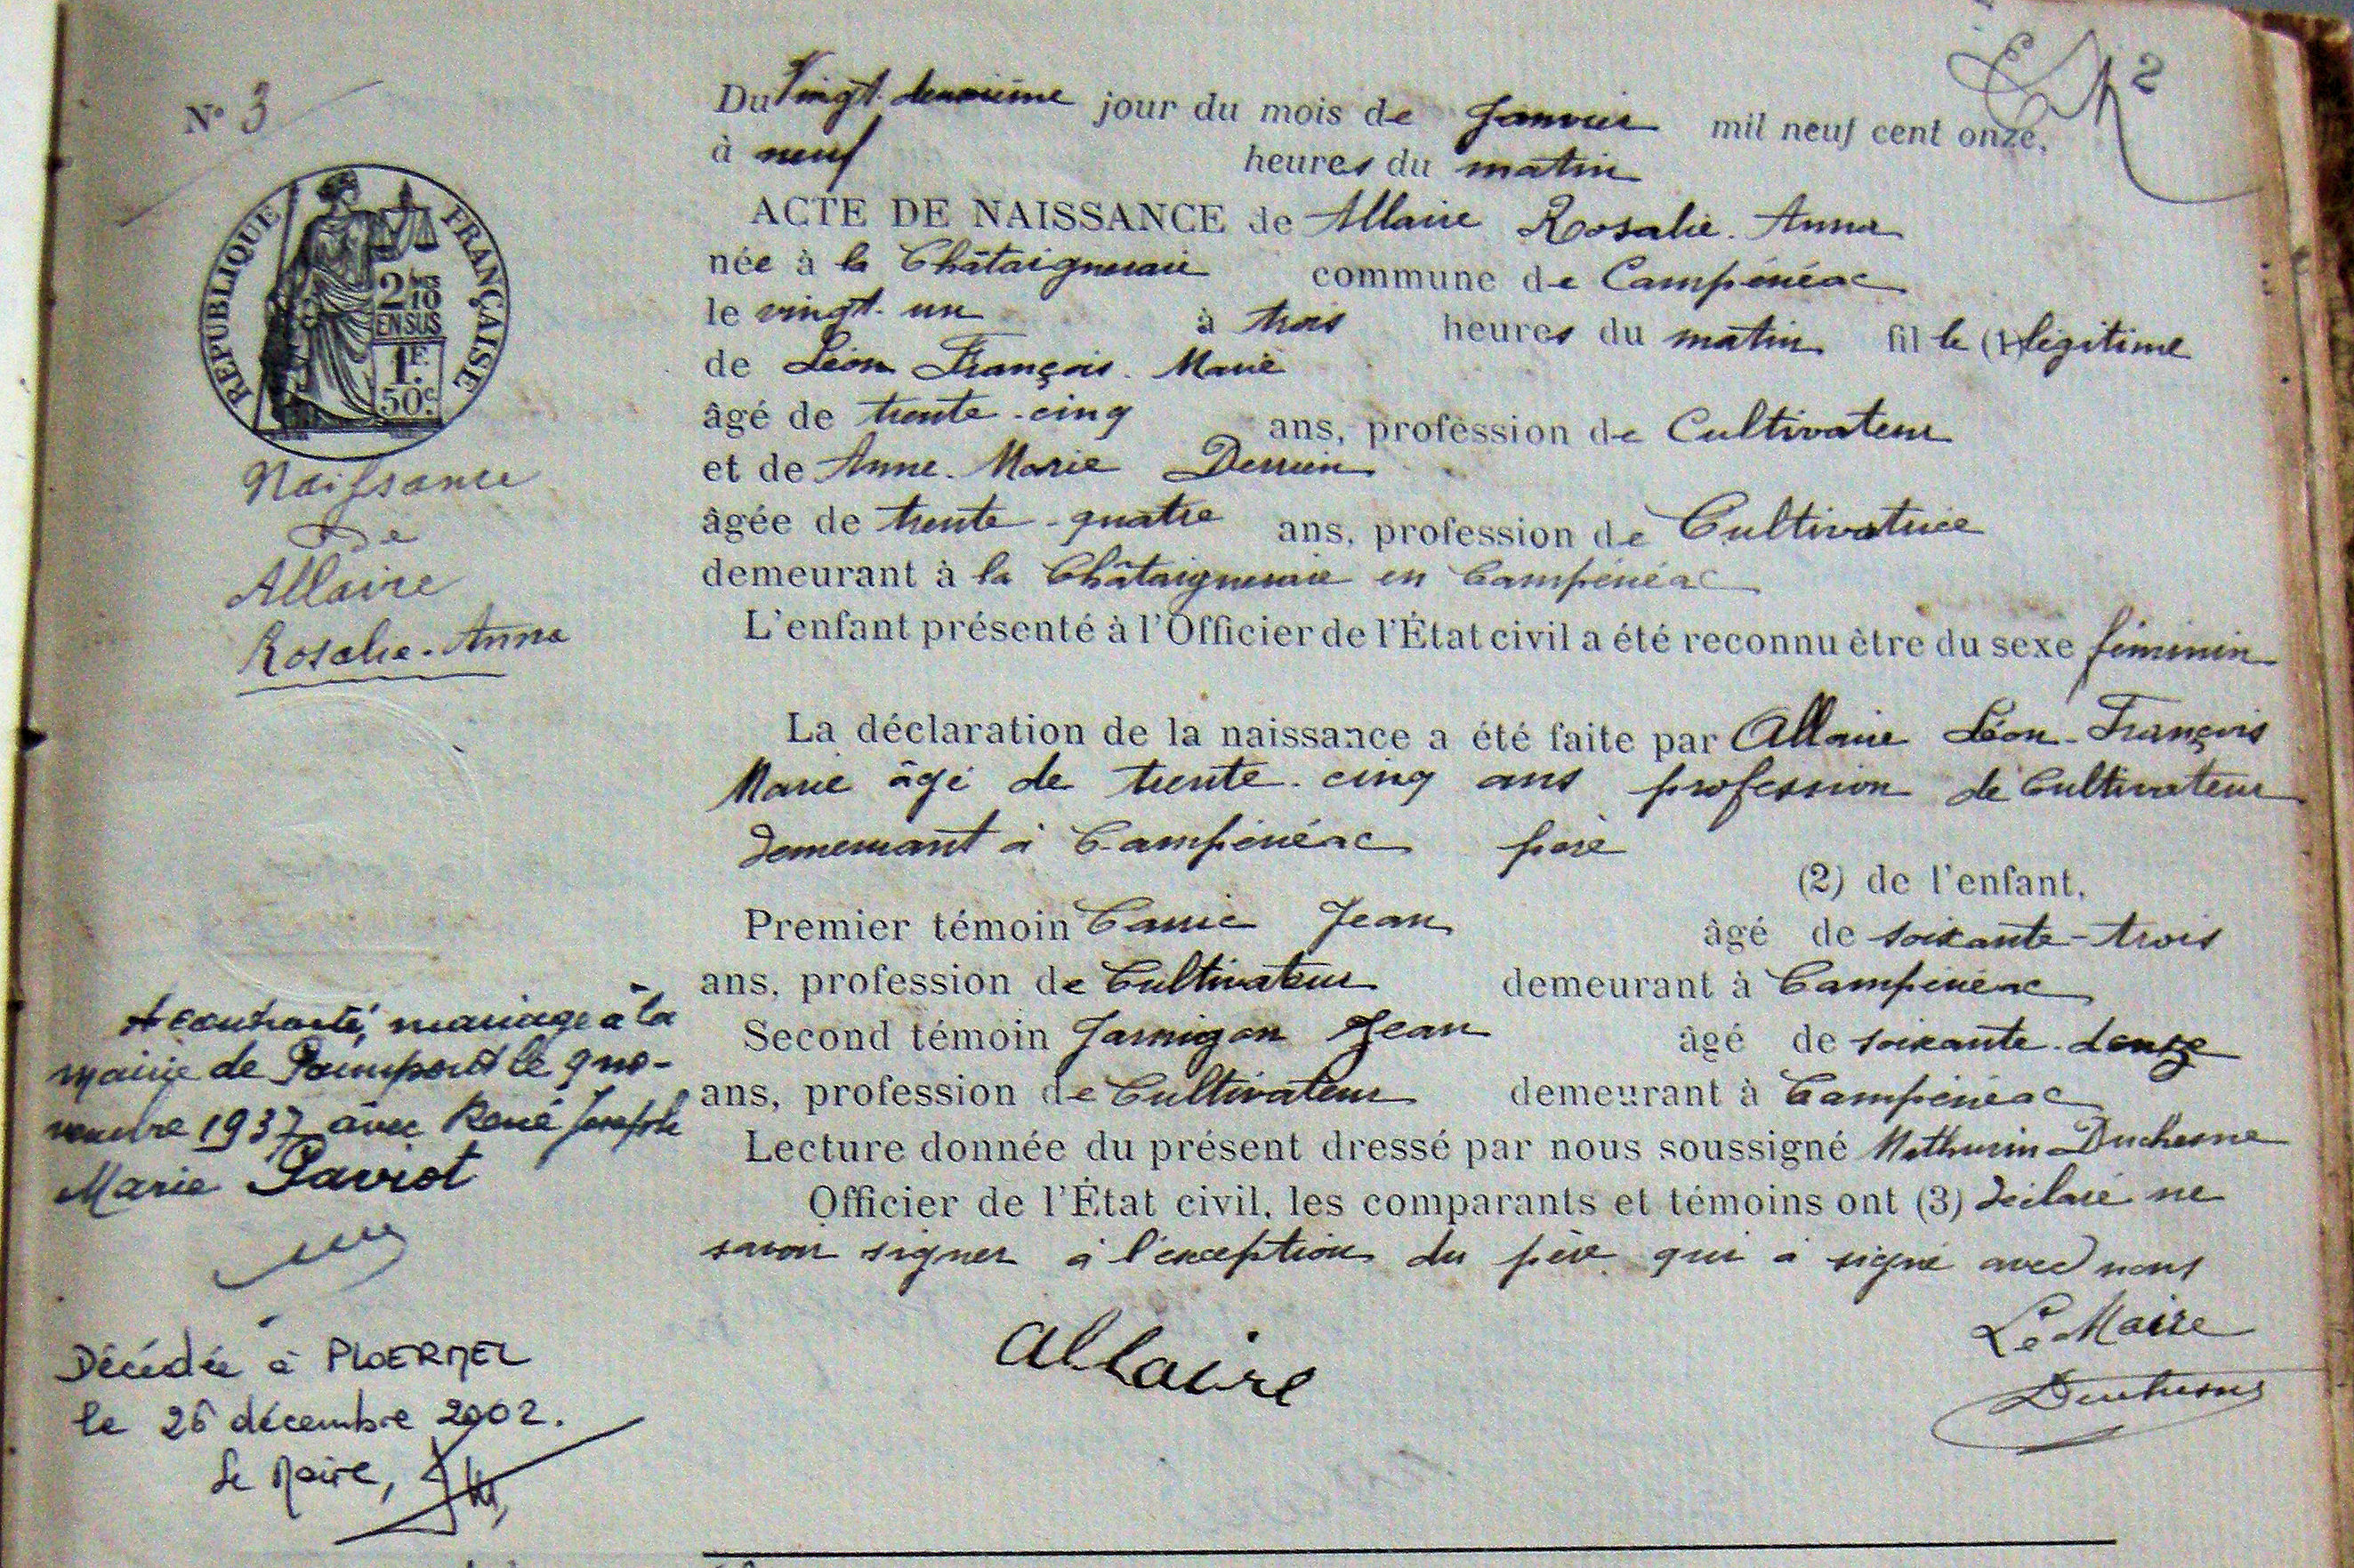 N° 3
RÉPUBLIQUE FRANÇAISE
2/10
EN SUS
1F.
50c.
Naissance
De
Allaire
Rosalie-Anna
A contracté mariage à la
mairie de Paimpont le 9 no-
vembre 1937 avec René Joseph
Marie Paviot
Décédée à PLOERMEL
le 26 décembre 2002.
Le Maire,
Du Vingt deuxième jour du mois de Janvier mil neuf cent onze,
à neuf heures du matin
ACTE DE NAISSANCE de Allaire Rosalie-Anna
née à la Châtaigneraie commune de Campénéac
le vingt-un à trois heures du matin fille (1) légitime
de Léon François-Marie
âgé de trente-cinq ans, profession de Cultivateur
et de Anne-Marie Derrien
âgée de trente-quatre ans, profession de Cultivatrice
demeurant à la Châtaigneraie en Campénéac
L'enfant présenté à l'Officier de l'État civil a été reconnu être du sexe féminin
La déclaration de la naissance a été faite par Allaire Léon-François
Marie âgé de trente-cinq ans profession de Cultivateur
demeurant à Campénéac père
(2) de l'enfant.
Premier témoin Jean âgé de soixante-trois
ans, profession de Cultivateur demeurant à Campénéac
Second témoin Jarnigon Jean âgé de soixante-douze
ans, profession de Cultivateur demeurant à Campénéac
Lecture donnée du présent dressé par nous soussigné Mathurin Duchesne
Officier de l'État civil, les comparants et témoins ont (3) déclaré ne
savoir signer à l'exception du père qui a signé avec nous
Allaire
Le Maire
Duchesne